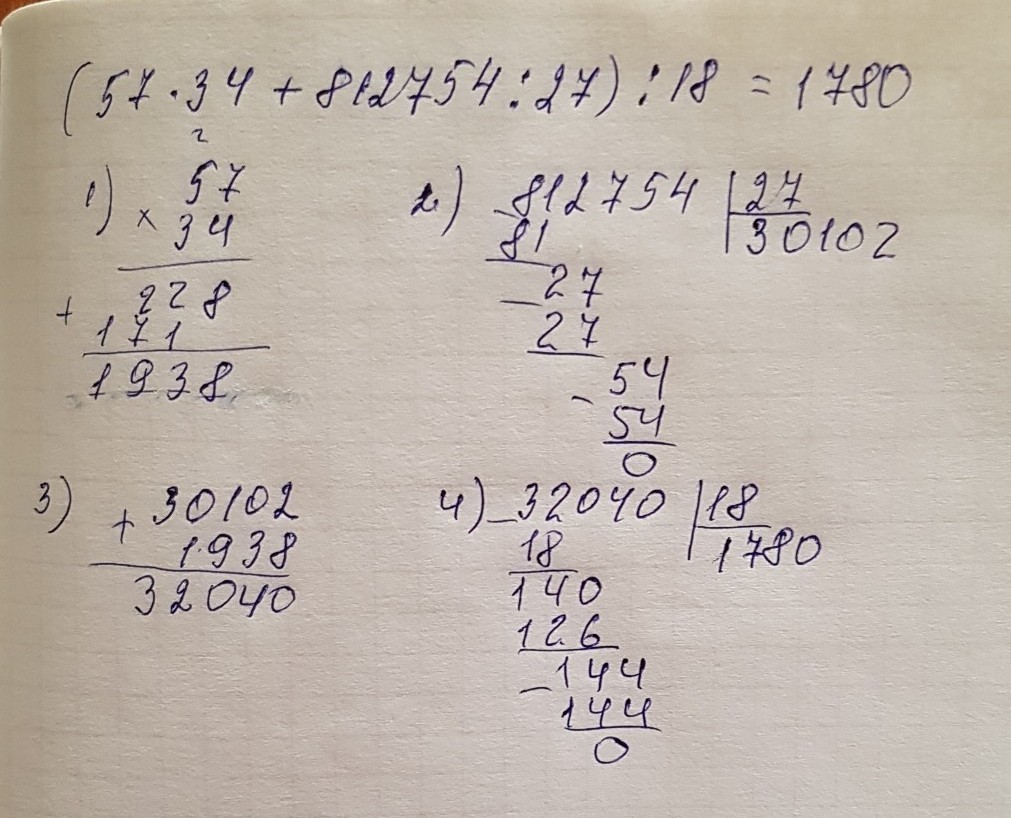 (57·34+812754:27):18=1780
2
1) × 57
34
+ 228
171
1938
2) -812754 |27
81 30102
- 27
27
- 54
54
0
3) + 30102
1938
32040
4) -32040 |18
18 1780
140
126
- 144
144
0